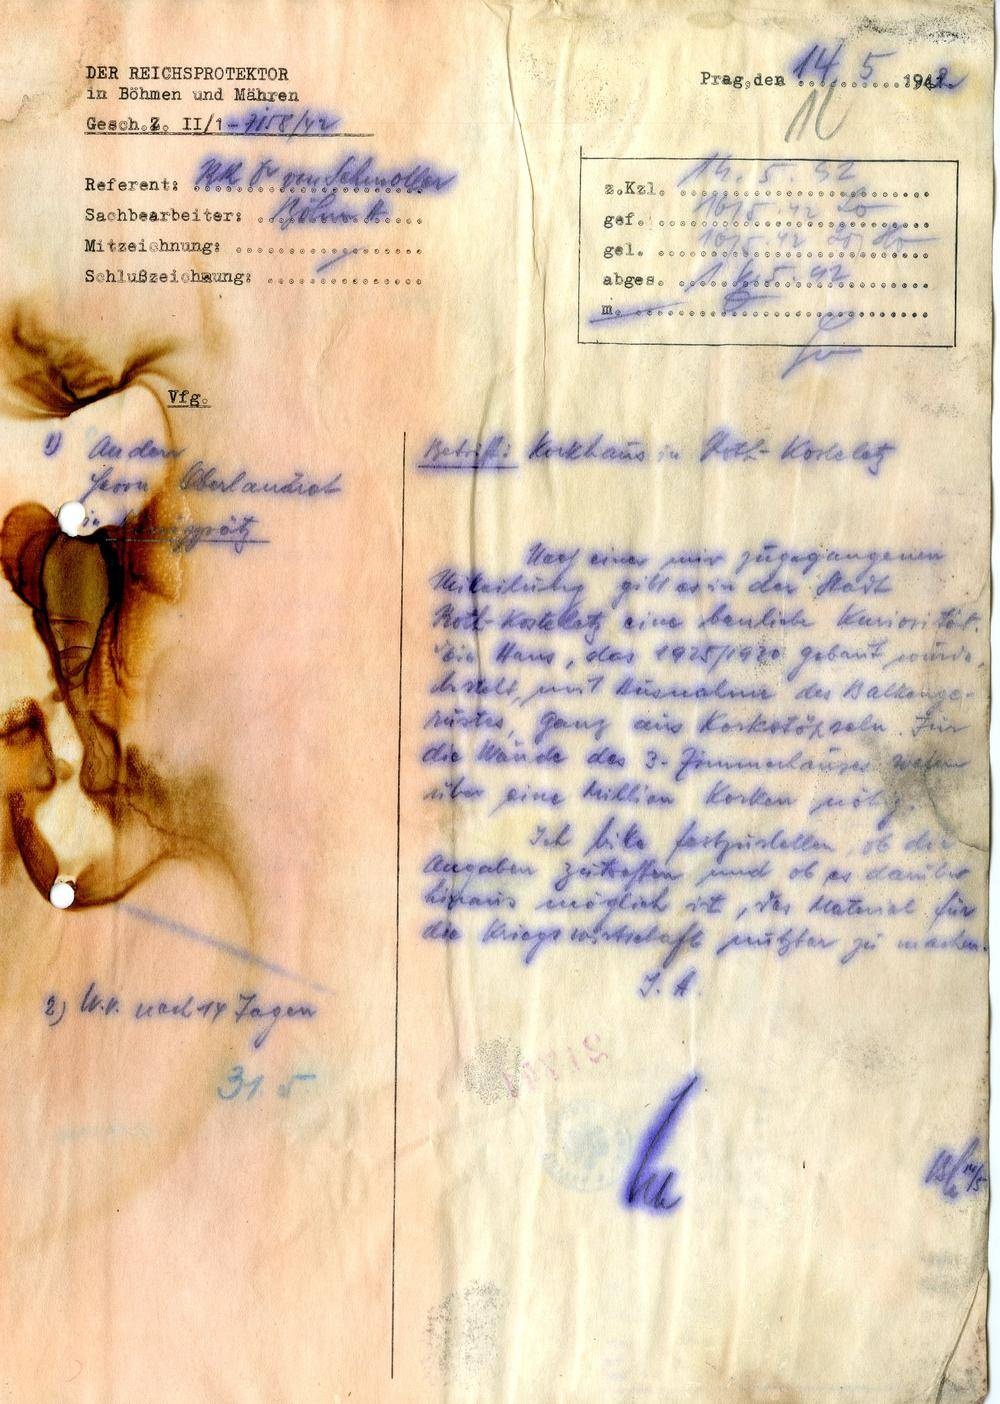 DER REICHSPROTEKTOR
in Böhmen und Mähren
Gesch.Z. II/1-7158/42
Prag, den 14. 5 1942
Referent: RR Dr von Schmoller
Sachbearbeiter:
Mitzeichnung:
Schlußzeichnung:
z.Kzl. 14. 5. 42
gef. 16/5.42
gel. 16/5.42
abges. 5.42
m.
Vfg.
1) An den
Herrn Oberlandrat
in Königgrätz
Betrifft: Korkhaus in Roth-Kosteletz
Nach einer mir zugegangenen
Mitteilung gibt es in der Stadt
Roth-Kosteletz eine bauliche Kuriosität.
Ein Haus, das 1925/1930 gebaut wurde,
besteht, mit Ausnahme des Balkenge-
rüstes, ganz aus Korkstöpseln. Für
die Wände des 3-Zimmerhauses waren
über eine Million Korken nötig.
Ich bitte festzustellen, ob die
Angaben zutreffen und ob es darüber
hinaus möglich ist, das Material für
die Kriegswirtschaft nutzbar zu machen.
I. A.
2) W.v. nach 14 Tagen
31. 5
14/5